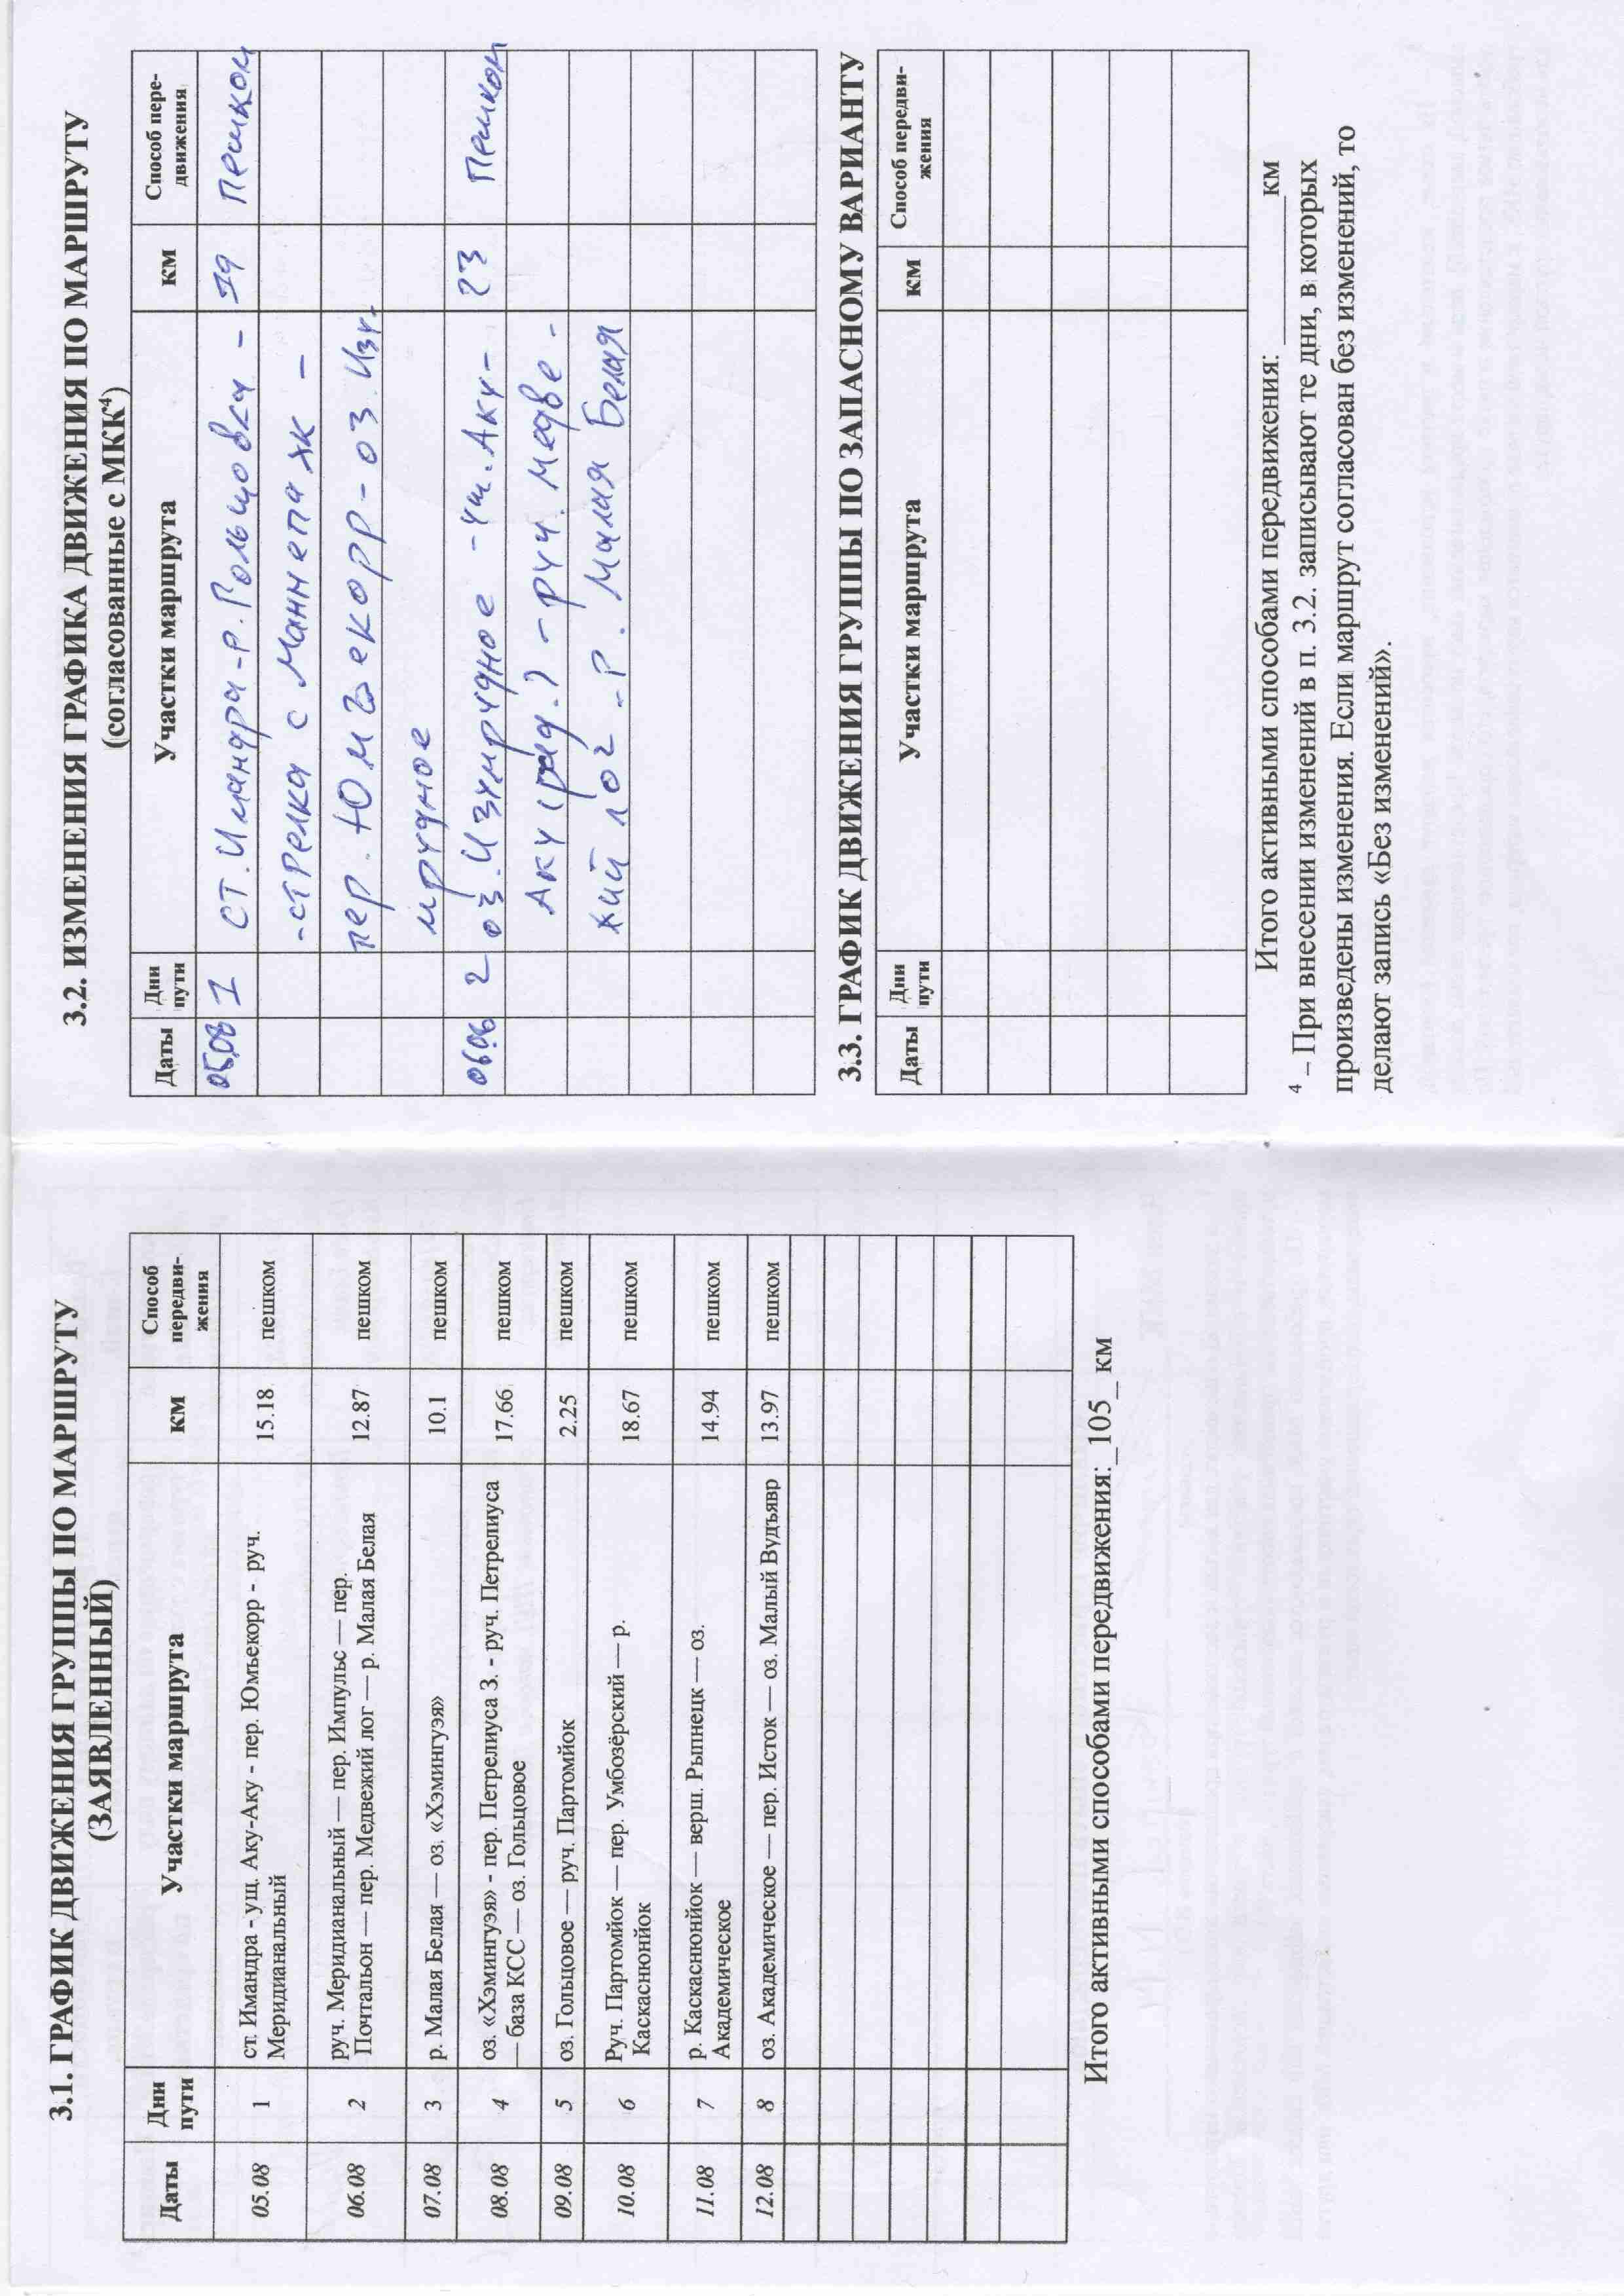 3.1. ГРАФИК ДВИЖЕНИЯ ГРУППЫ ПО МАРШРУТУ
(ЗАЯВЛЕННЫЙ)
Даты Дни пути Участки маршрута км Способ передви-жения
05.08 1 ст. Имандра - ущ. Аку-Аку - пер. Юмъекорр - руч.
Меридианальный 15.18 пешком
06.08 2 руч. Меридианальный — пер. Импульс — пер.
Почтальон — пер. Медвежий лог — р. Малая Белая 12.87 пешком
07.08 3 р. Малая Белая — оз. «Хэмингуэя» 10.1 пешком
08.08 4 оз. «Хэмингуэя» - пер. Петрелиуса З. - руч. Петрелиуса
— база КСС — оз. Гольцовое 17.66 пешком
09.08 5 оз. Гольцовое — руч. Партомйок 2.25 пешком
10.08 6 Руч. Партомйок — пер. Умбозёрский — р.
Каскаснюнйок 18.67 пешком
11.08 7 р. Каскаснюнйок — верш. Рыпнецк — оз.
Академическое 14.94 пешком
12.08 8 оз. Академическое — пер. Исток — оз. Малый Вудъявр 13.97 пешком
Итого активными способами передвижения:_105_ км
3.2. ИЗМЕНЕНИЯ ГРАФИКА ДВИЖЕНИЯ ПО МАРШРУТУ
(согласованные с МКК⁴)
Даты Дни пути Участки маршрута км Способ пере-движения
05.08 1 ст. Имандра - р. Гольцовка - 19 Пешком
- стрелка с Маннепахк -
пер. Юмъекорр - оз. Изу-
мрудное
06.06 2 оз. Изумрудное - ущ. Аку- 23 Пешком
Аку (рад.) - руч. Медве-
жий лог - р. Малая Белая
3.3. ГРАФИК ДВИЖЕНИЯ ГРУППЫ ПО ЗАПАСНОМУ ВАРИАНТУ
Даты Дни пути Участки маршрута км Способ передви-жения
Итого активными способами передвижения: __________ км
⁴ – При внесении изменений в п. 3.2. записывают те дни, в которых
произведены изменения. Если маршрут согласован без изменений, то
делают запись «Без изменений».